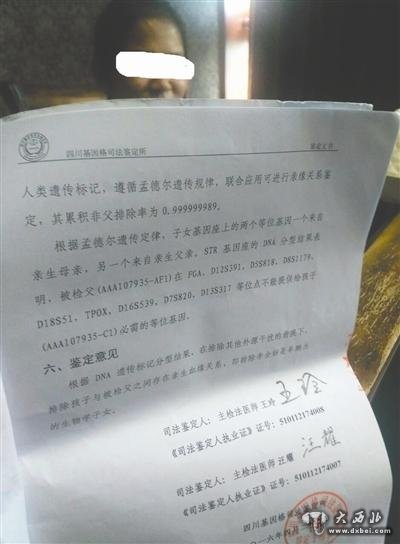 四川基因格司法鉴定所
鉴定文书
人类遗传标记，遵循孟德尔遗传规律，联合应用可进行亲缘关系鉴
定，其累积非父排除率为0.999999989。
根据孟德尔遗传定律，子女基因座上的两个等位基因一个来自
亲生母亲，另一个来自亲生父亲，STR 基因座的 DNA 分型结果表
明，被检父(AAA107935-AF1)在 FGA，D12S391，D5S818，D8S1179，
D18S51，TPOX，D16S539，D7S820，D13S317 等位点不能提供给孩子
(AAA107935-C1)必需的等位基因。
六、鉴定意见
根据 DNA 遗传标记分型结果，在排除其他外源干扰的前提下，
排除孩子与被检父之间存在亲生血缘关系，即排除
的生物学子女。
司法鉴定人：主检法医师 王玲
王玲
《司法鉴定人执业证》证号：510112174008
司法鉴定人：主检法医师 汪耀
汪耀
《司法鉴定人执业证》证号：510112174007
四川基因格司法
一六年四月
大西北
www.dxbei.com